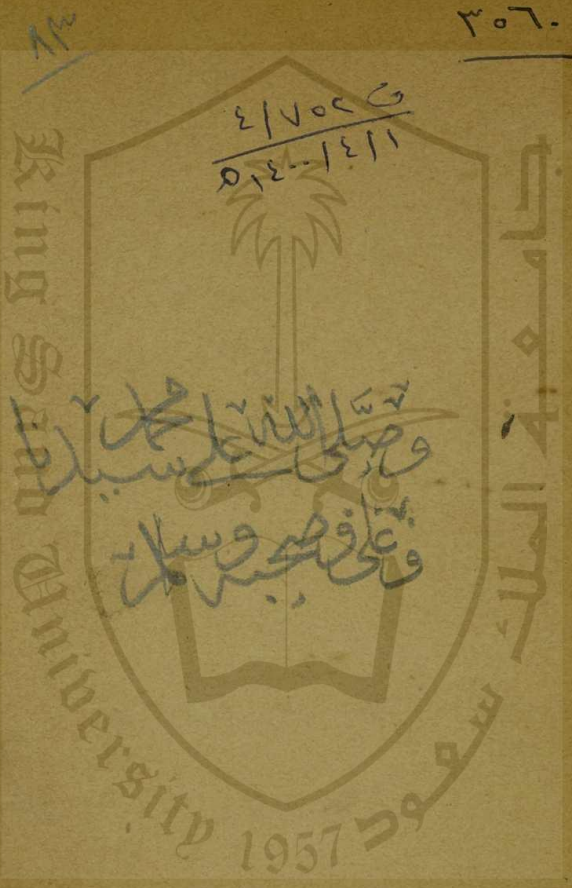 ٣٥٦٠
٨٣
ف ٤/٧٥٢
١٤٠٠/٤/١ه
وصلى الله على سيدنا محمد
وعلى وصحبه وسلم
King Saud University 1957
جامعة الملك سعود